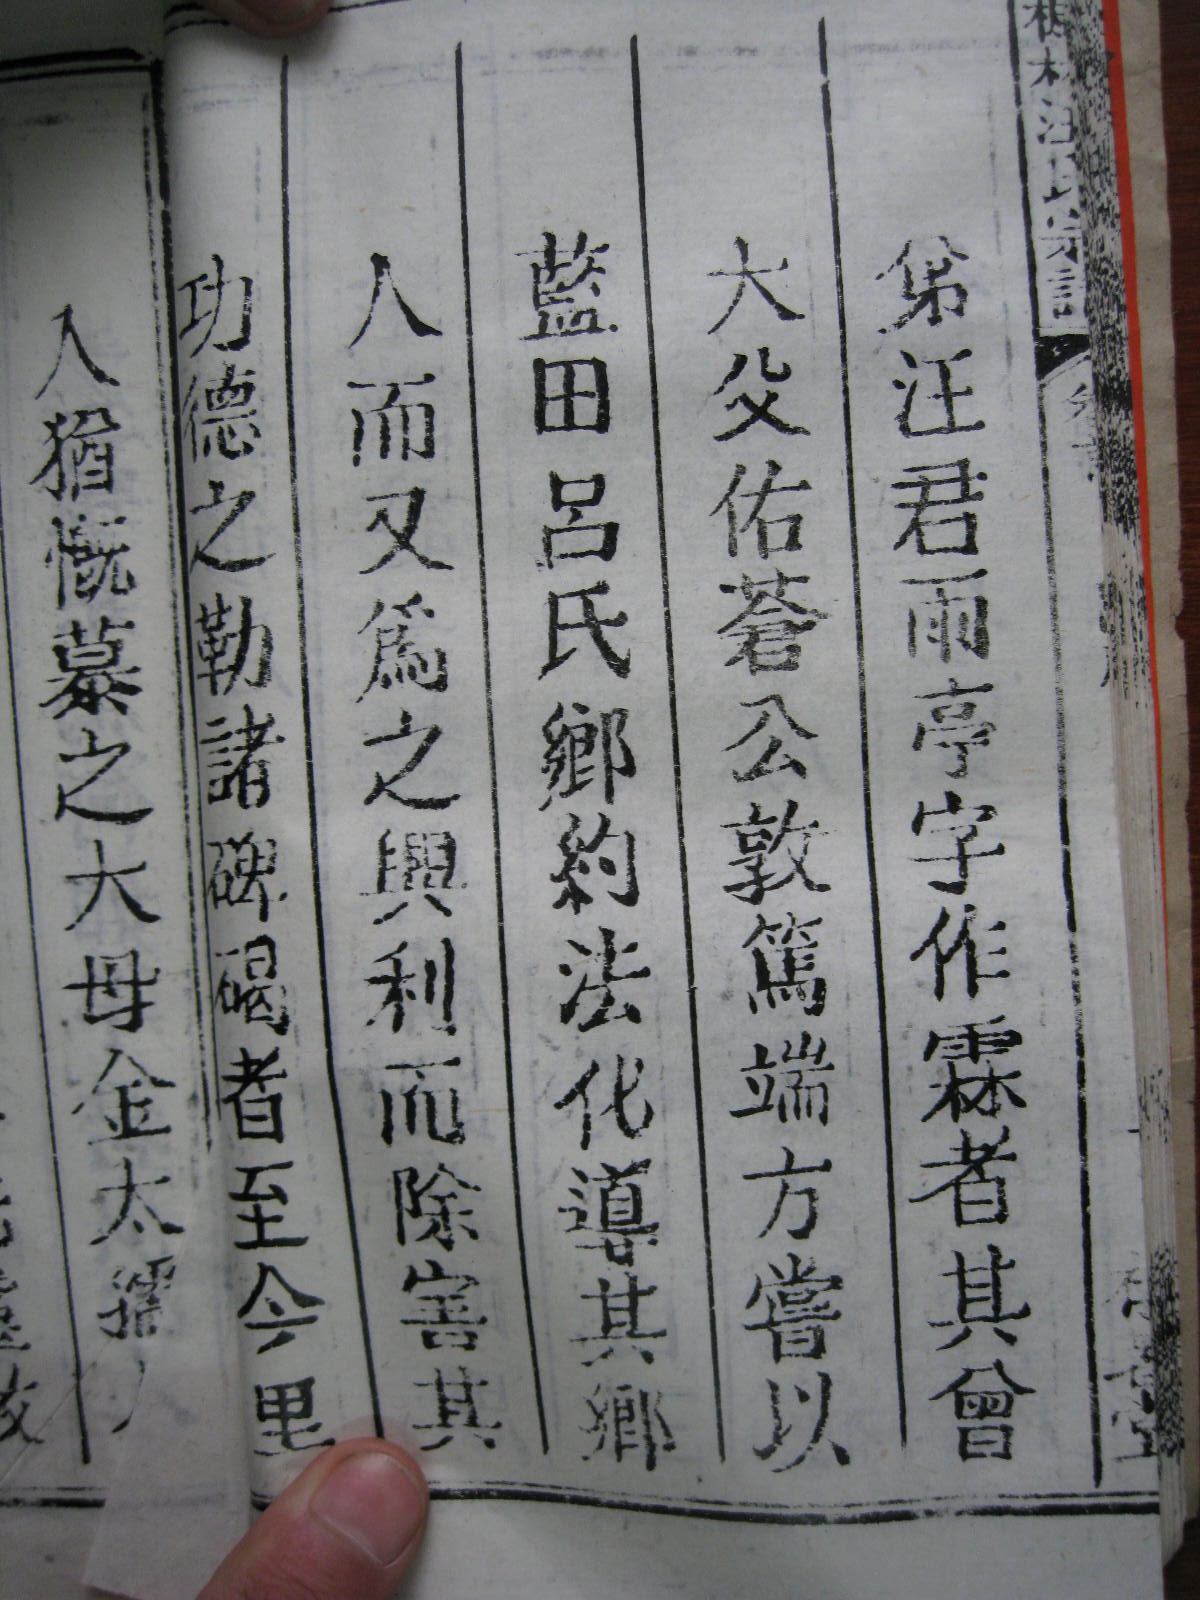 汪氏宗譜
弟汪君雨亭字作霖者其曾
大父佑蒼公敦篤端方嘗以
藍田呂氏鄉約法化導其鄉
人而又爲之興利而除害其
功德之勒諸碑碣者至今里
人猶慨慕之大母金太孺人